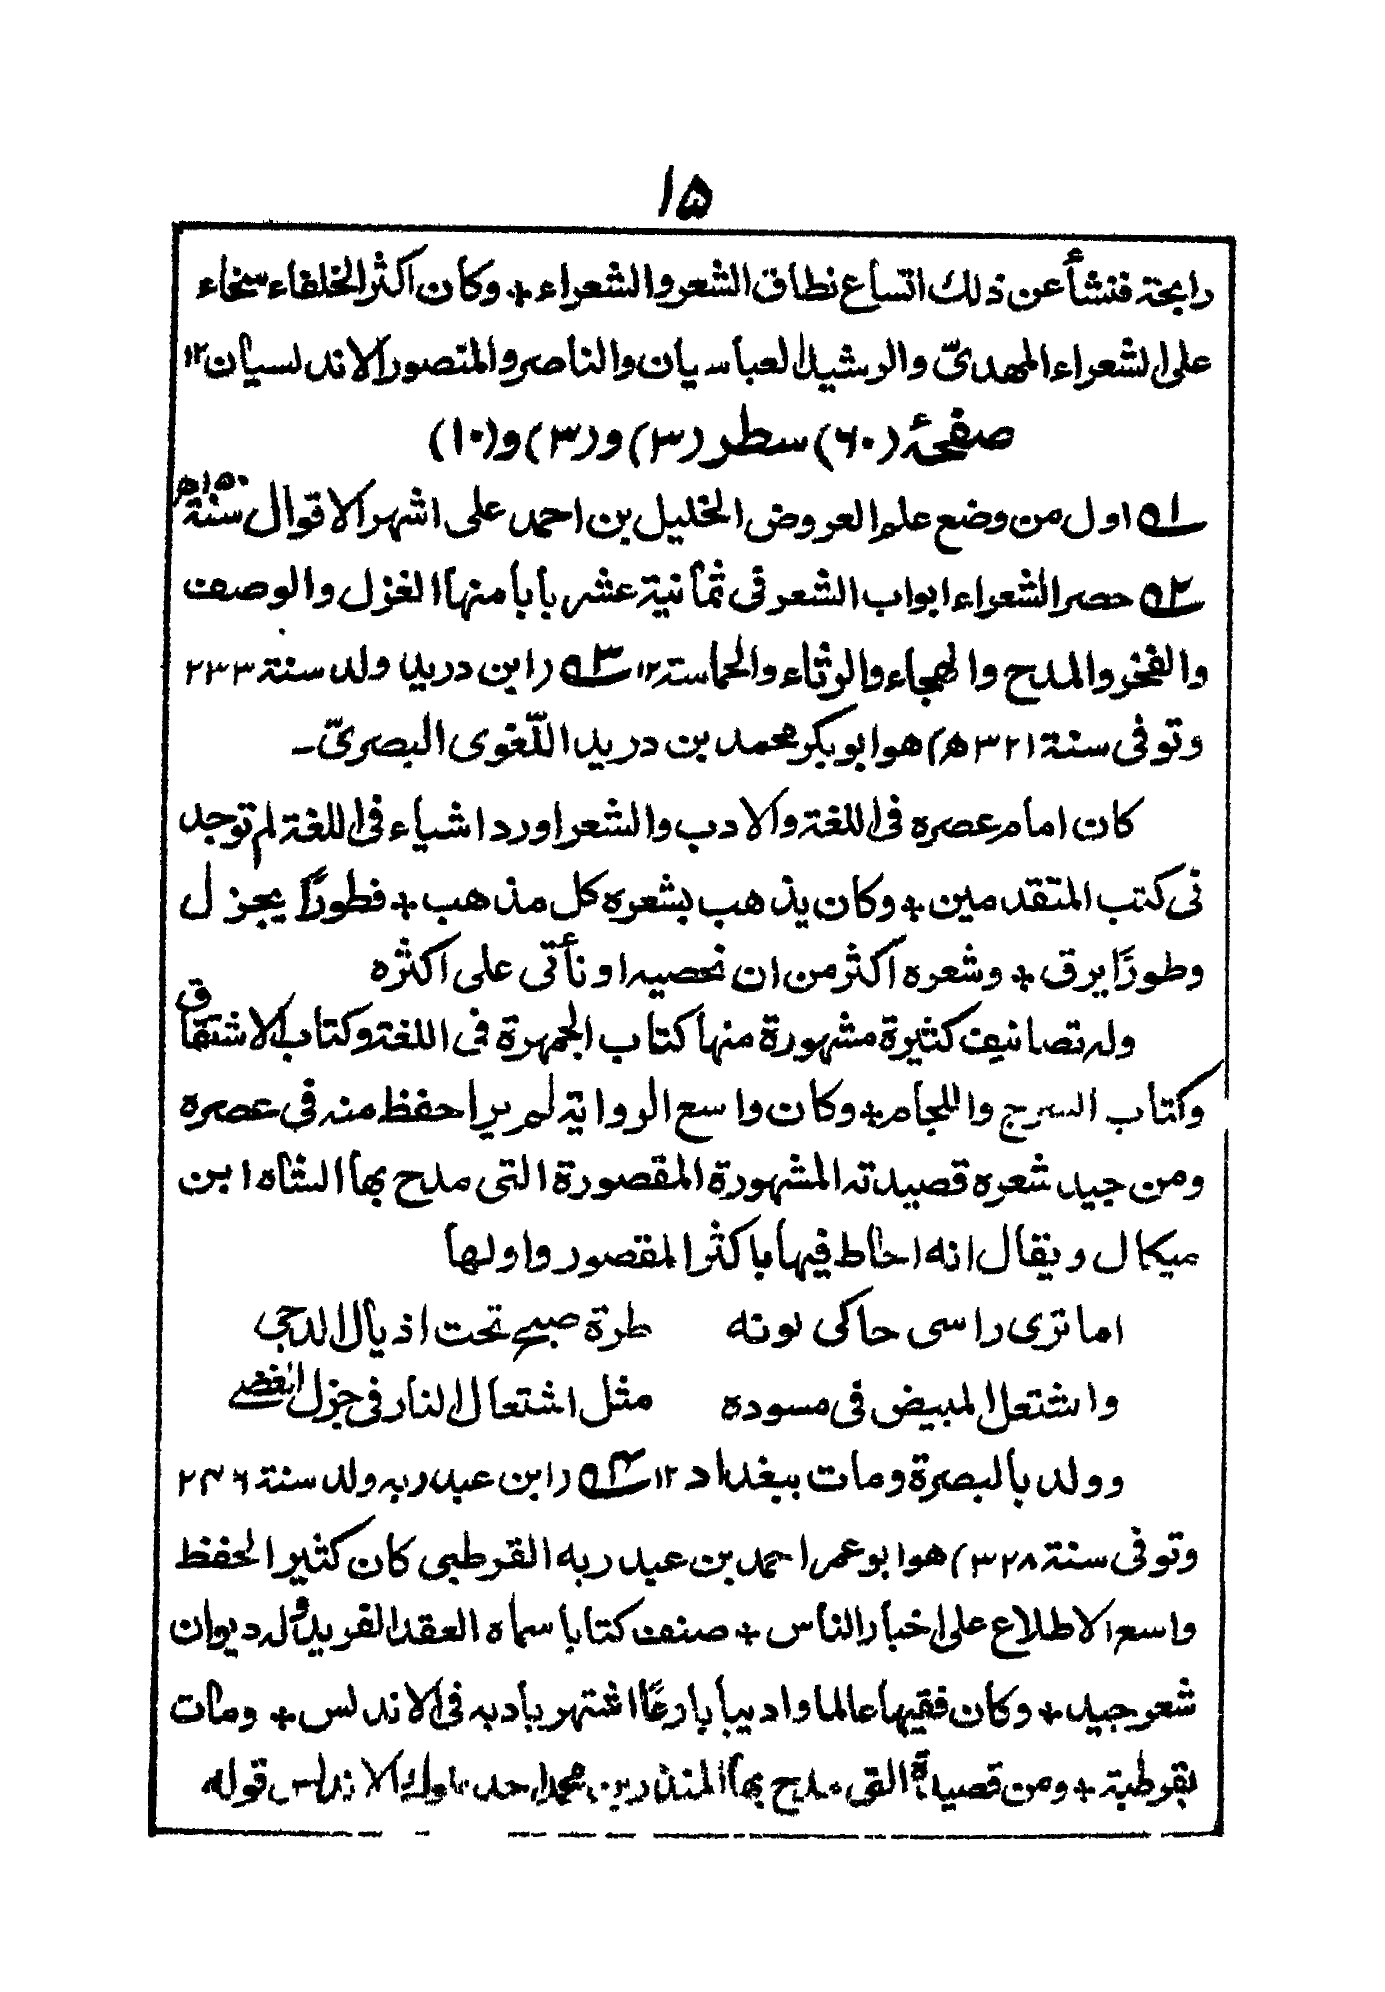 ۱۵
رابحة فنشأ عن ذلك اتساع نطاق الشعر والشعراء + وكان اكثر الخلفاء سخاء
على الشعراء المهدىّ والرشيد العباسيان والناصر والمنصور الاندلسيان ۱۲
صفحۂ (۶۰) سطر (۳) و (۳) و (۱۰)
۱ه اول من وضع علم العروض الخليل بن احمد على اشهر الاقوال سنة ۱۵۰ه
۲ه حصر الشعراء ابواب الشعر فى ثمانية عشر بابا منها الغزل والوصف
والفخر والمدح والهجاء والرثاء والحماسة ۱۲ ۳ه (ابن دريد ولد سنة ۲۳۳
وتوفى سنة ۳۲۱ه) هو ابو بكر محمد بن دريد اللّغوى البصرىّ ۔
كان امام عصره فى اللغة والادب والشعر اورد اشياء فى اللغة لم توجد
فى كتب المتقدمين + وكان يذهب بشعره كل مذهب + فطورًا يجزل
وطورًا يرق + وشعره اكثر من ان نحصيه او نأتى على اكثره
وله تصانيف كثيرة مشهورة منها كتاب الجمهرة فى اللغة وكتاب الاشتقاق
وكتاب السرج واللجام + وكان واسع الرواية لم ير احفظ منه فى عصره
ومن جيد شعره قصيدته المشهورة المقصورة التى مدح بها الشاه ابن
ميكال ويقال انه احاط فيها باكثر المقصور واولها
اما ترى راسى حاكى لونه طرة صبح تحت اذيال الدجى
واشتعل المبيض فى مسوده مثل اشتعال النار فى جزل الغضے
وولد بالبصرة ومات ببغداد ۱۲ ۴ه (ابن عبد ربه ولد سنة ۲۴۶
وتوفى سنة ۳۲۸) هو ابو عمر احمد بن عبد ربه القرطبى كان كثير الحفظ
واسع الاطلاع على اخبار الناس + صنف كتابا سماه العقد الفريد وله ديوان
شعر جيد + وكان فقيها عالما واديبا بارعًا اشتهر بادبه فى الاندلس + ومات
بقرطبة + ومن قصيدة التى مدح بها المنذر بن محمد احد ملوك الاندلس قوله